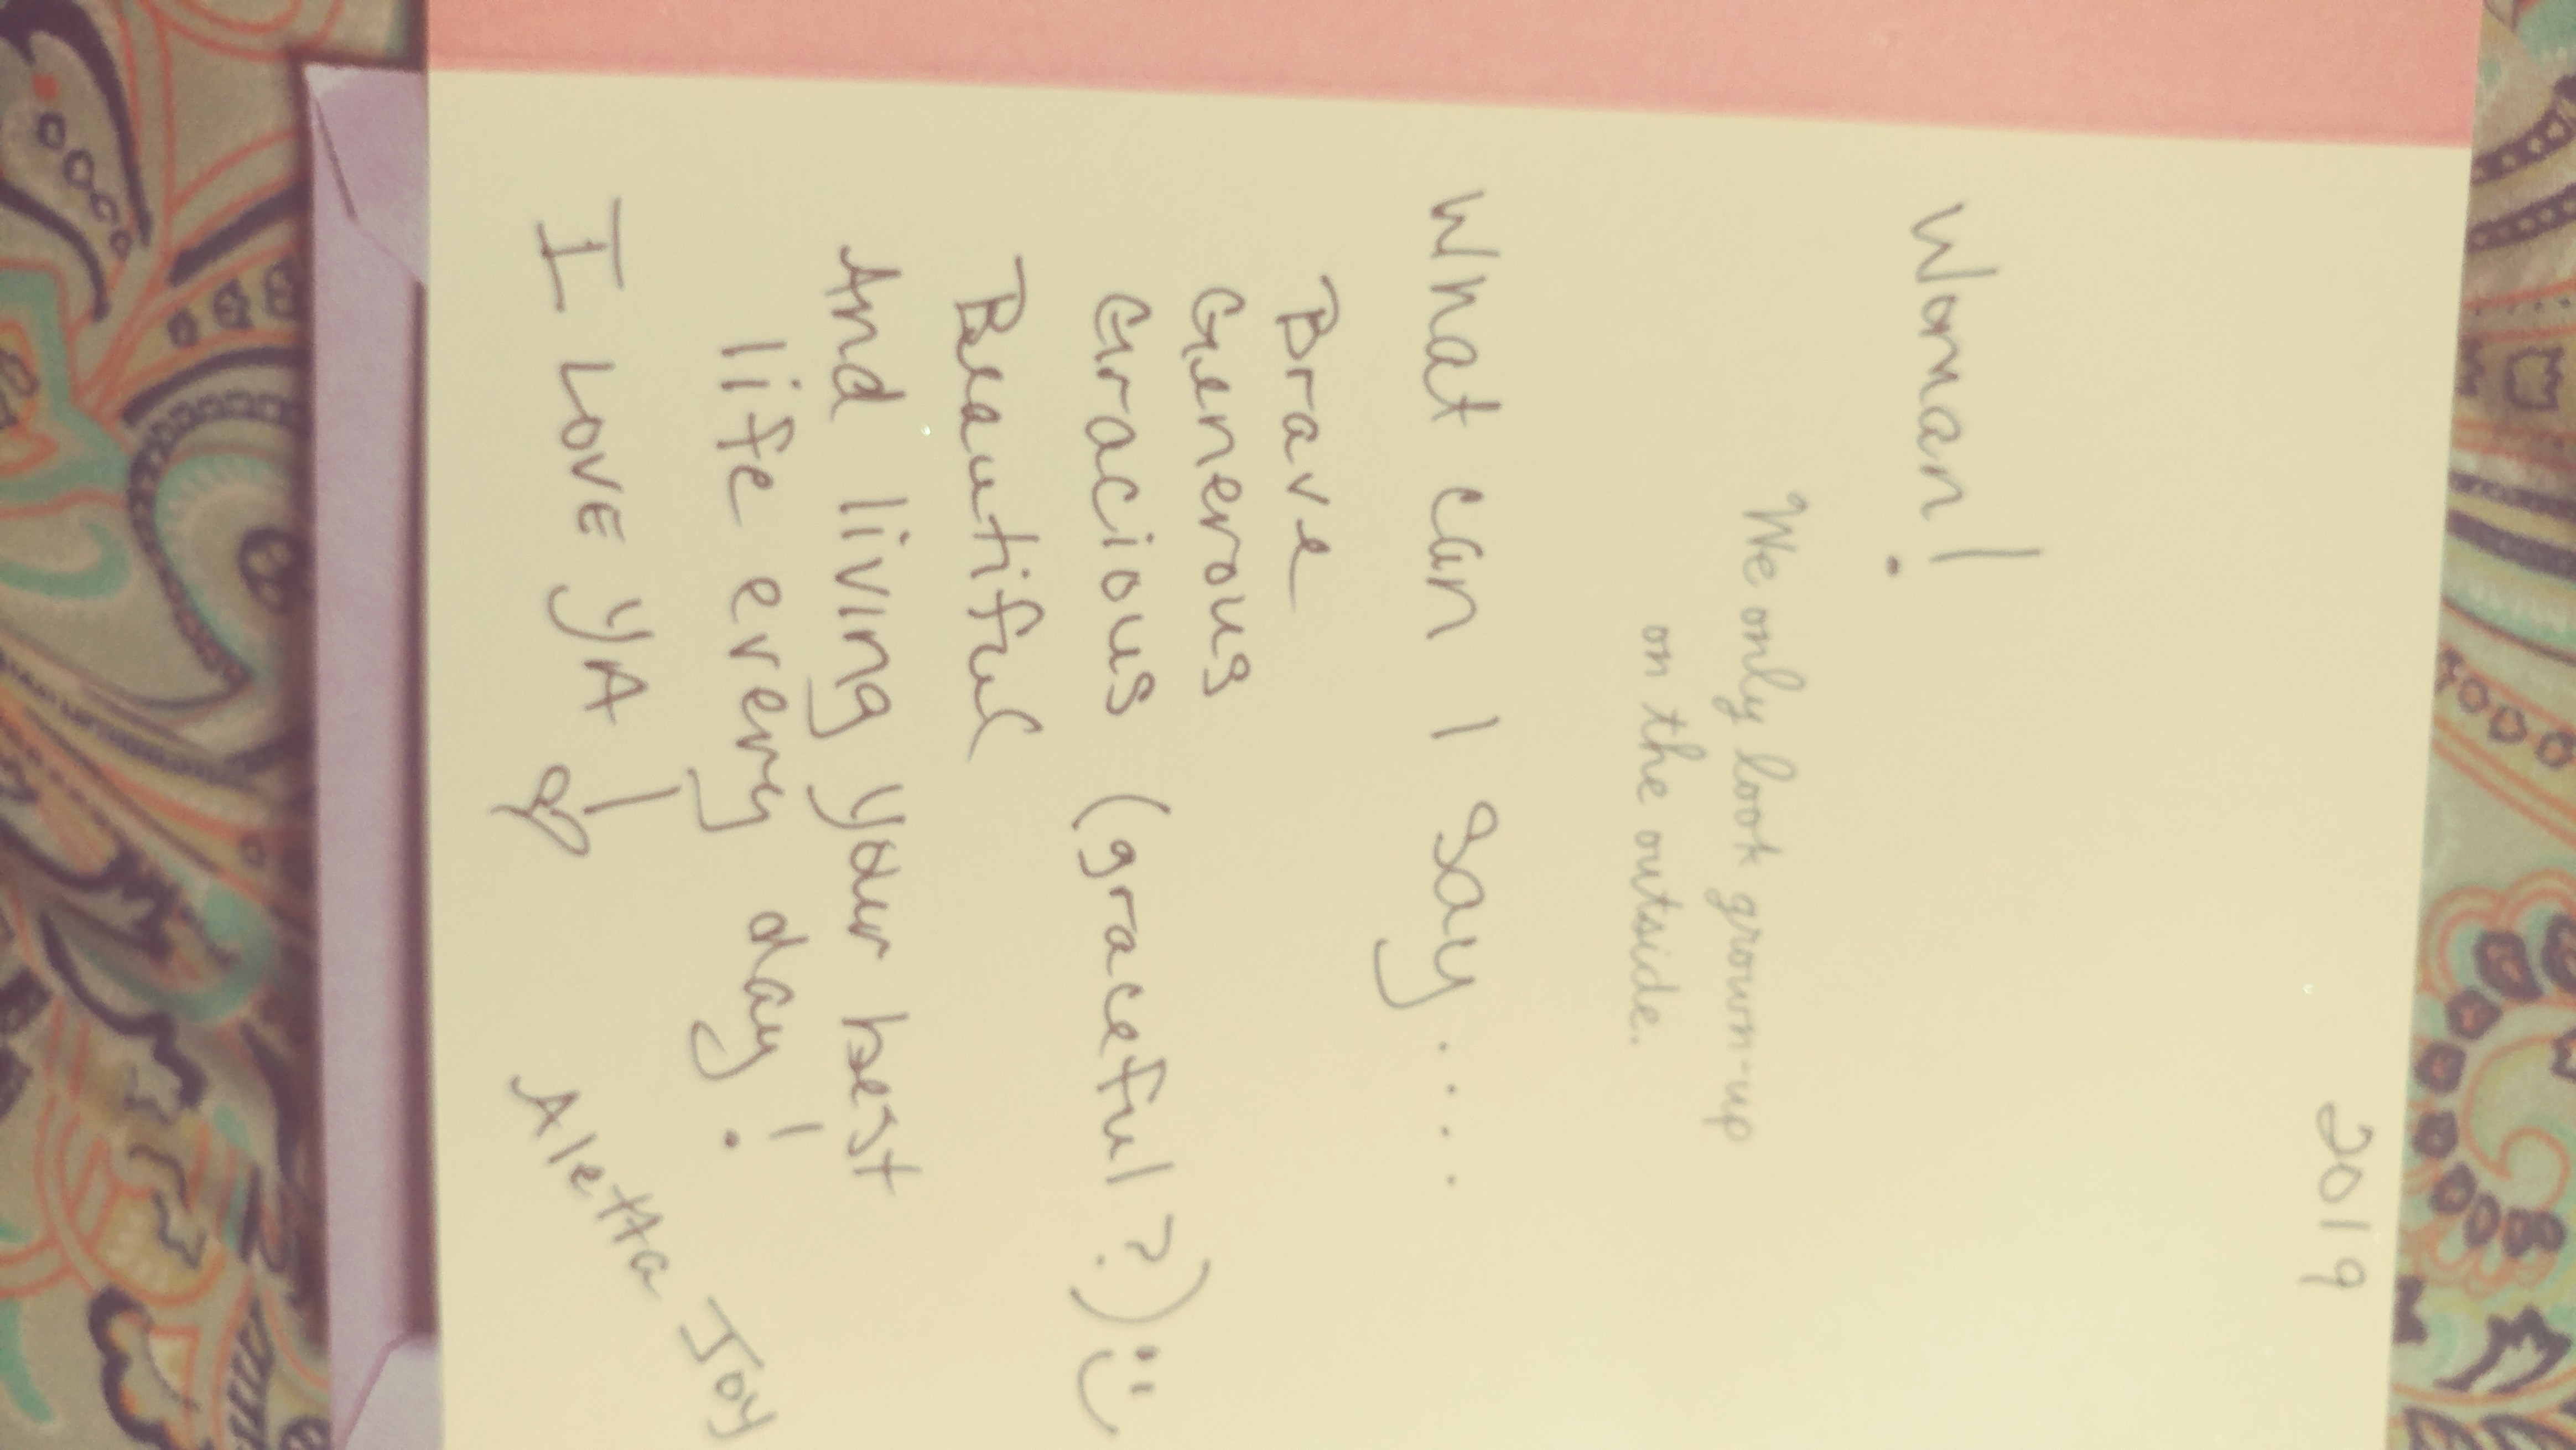 2019
Woman!
We only look grown-up
on the outside.
What can I say....
Brave
Generous
Gracious (graceful?) :)
Beautiful
And living your best
life every day!
I LOVE YA!
Aletta Joy